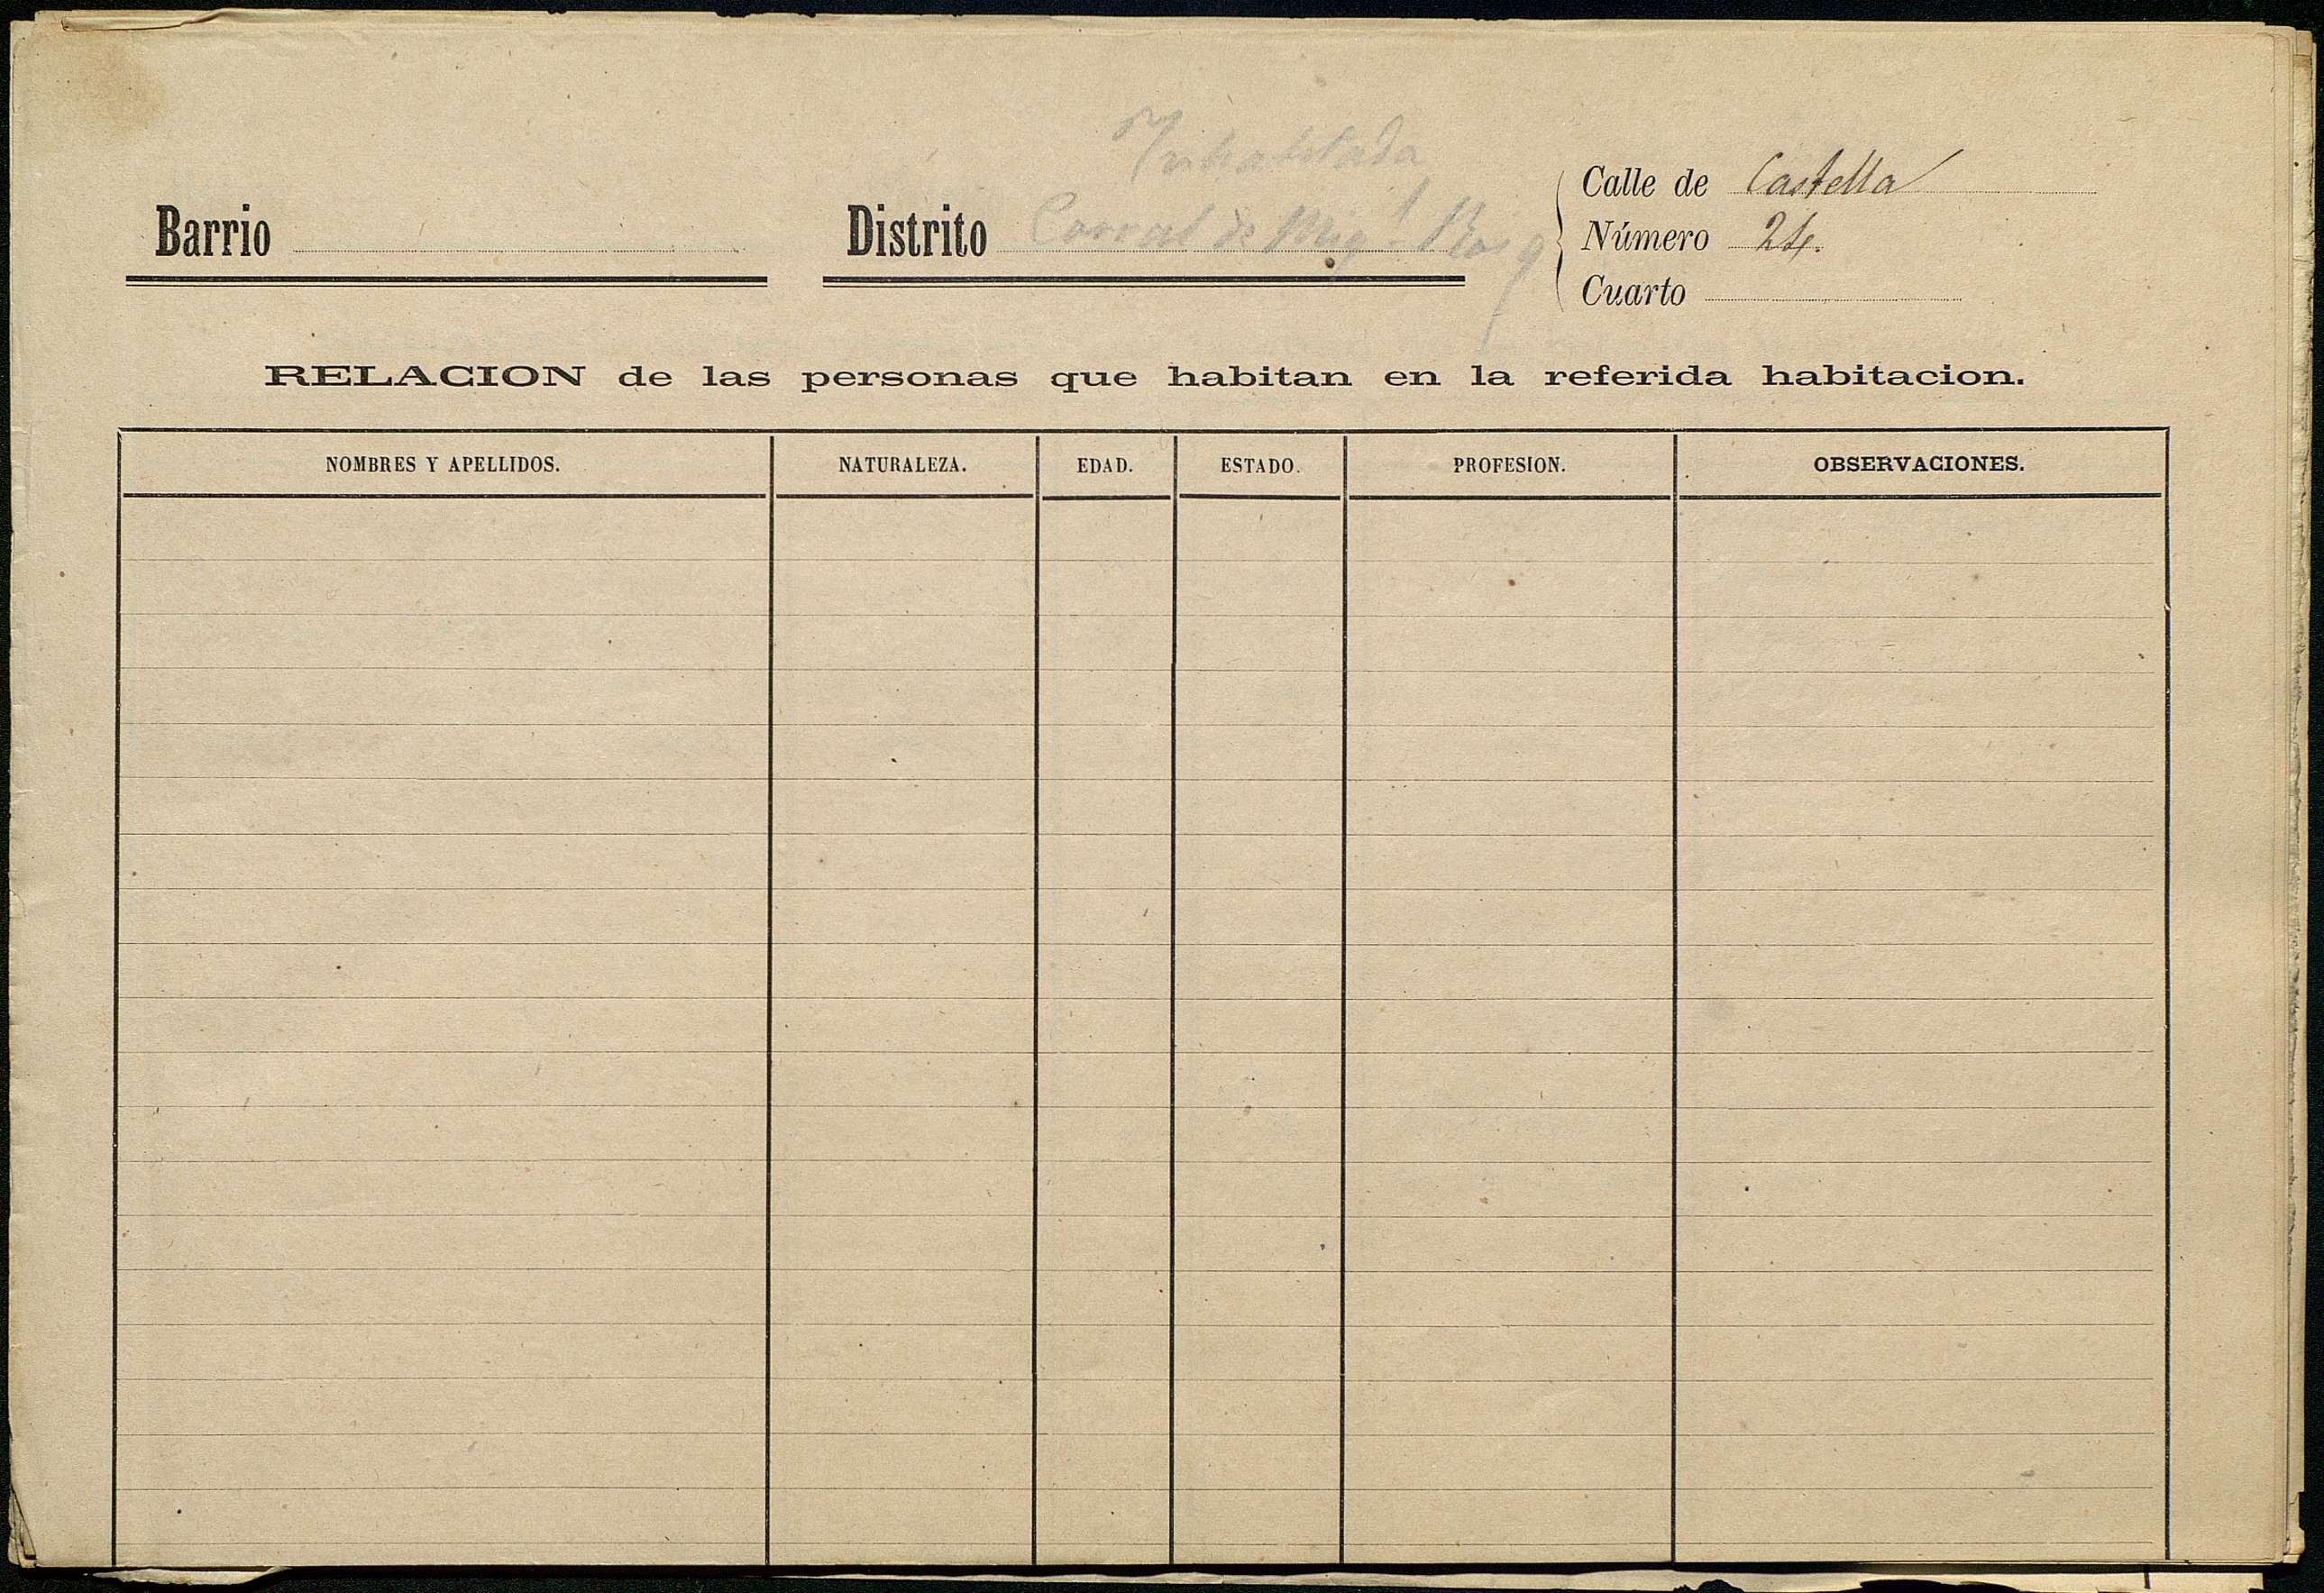 Inhabitada
Corral de Mig.l Roig
Barrio
Distrito
Calle de Castella
Número 24.
Cuarto
RELACION de las personas que habitan en la referida habitacion.
NOMBRES Y APELLIDOS. NATURALEZA. EDAD. ESTADO. PROFESION. OBSERVACIONES.